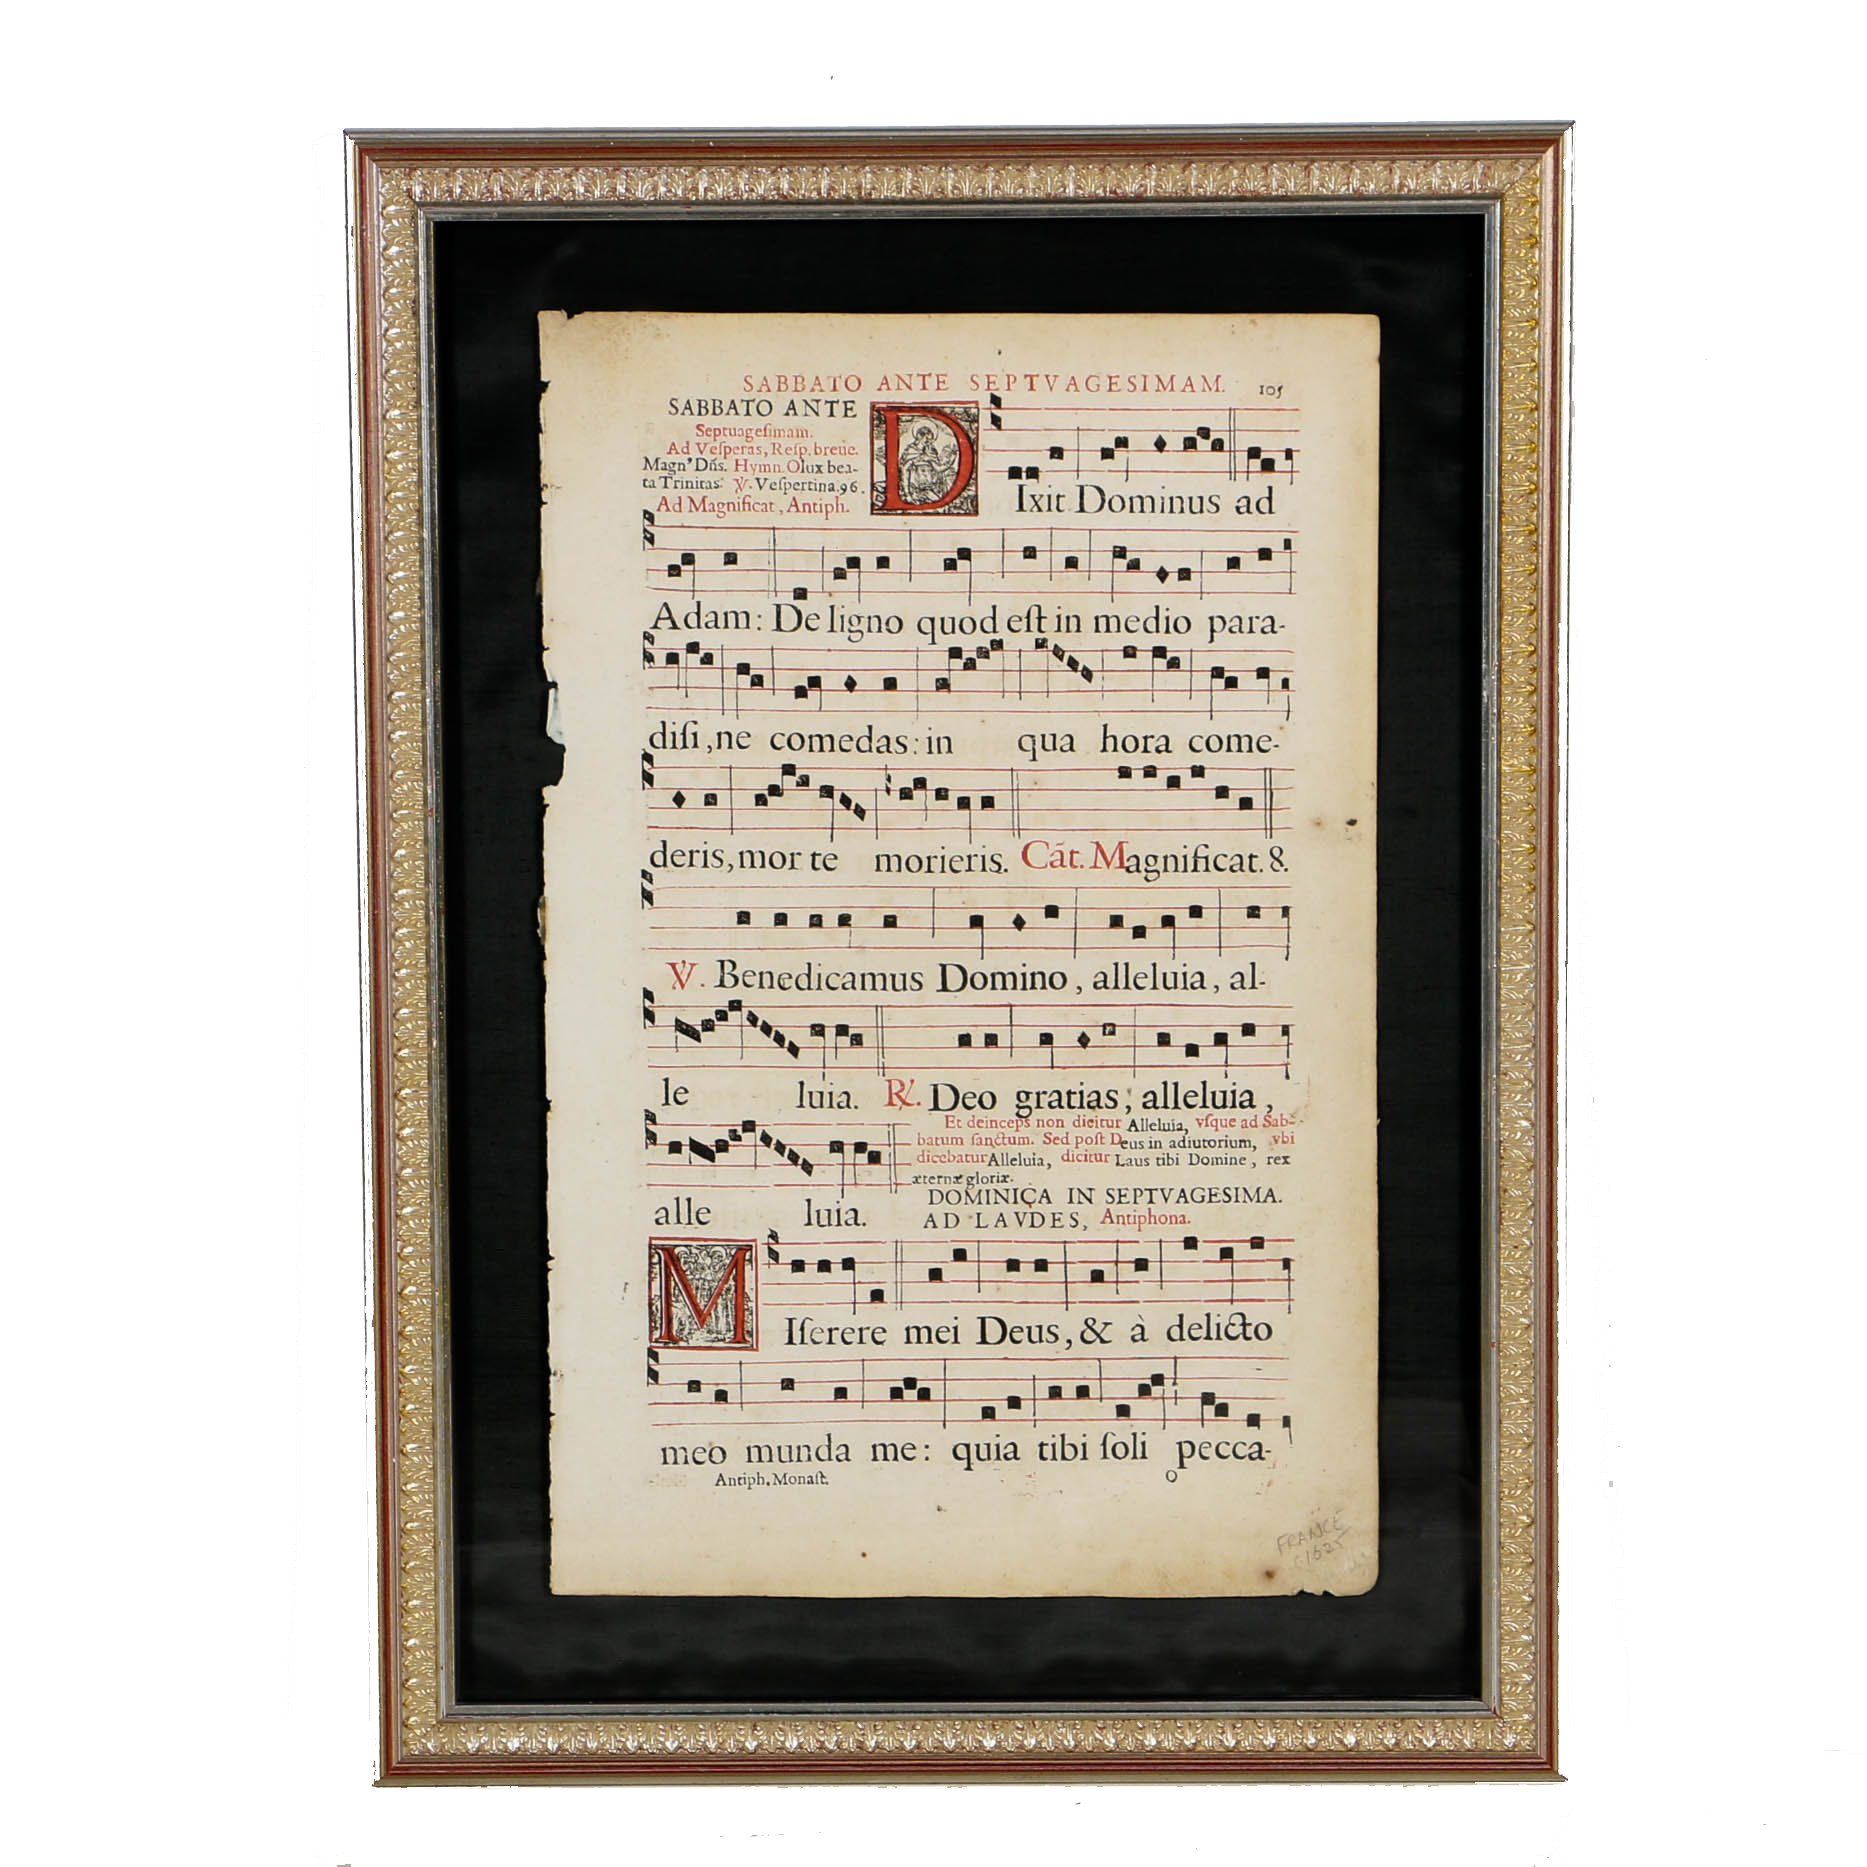 SABBATO ANTE SEPTVAGESIMAM. 105
SABBATO ANTE
Septuagesimam.
Ad Veſperas, Reſp. breue.
Magn' Dñs. Hymn. O lux bea-
ta Trinitas: ℣. Veſpertina. 96.
Ad Magnificat, Antiph.
DIxit Dominus ad
Adam: De ligno quod eſt in medio para-
diſi, ne comedas: in qua hora come-
deris, mor te morieris. Cãt. Magnificat. 8.
℣. Benedicamus Domino, alleluia, al-
le luia. ℟. Deo gratias, alleluia,
Et deinceps non dicitur Alleluia, vſque ad Sab-
batum ſanctum. Sed poſt Deus in adiutorium, vbi
dicebatur Alleluia, dicitur Laus tibi Domine, rex
æternæ gloriæ.
alle luia.
DOMINICA IN SEPTVAGESIMA.
AD LAVDES, Antiphona.
MIſerere mei Deus, & à delicto
meo munda me: quia tibi ſoli pecca-
Antiph. Monaſt. O
FRANCE
c1625